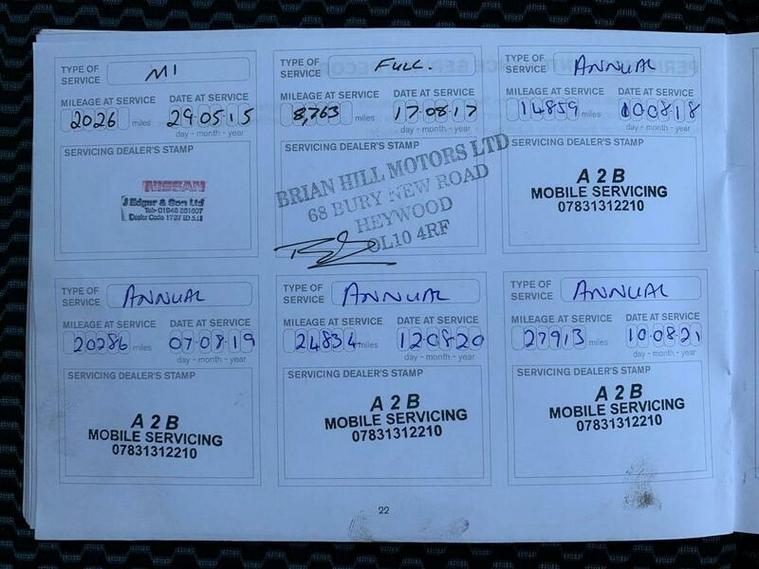 TYPE OF SERVICE M1
MILEAGE AT SERVICE DATE AT SERVICE
2026 miles 29 05 15
day - month - year
SERVICING DEALER'S STAMP
NISSAN
J Edgar & Son Ltd
Dealer Code
TYPE OF SERVICE FULL.
MILEAGE AT SERVICE DATE AT SERVICE
8,763 miles 17 08 17
day - month - year
SERVICING DEALER'S STAMP
BRIAN HILL MOTORS LTD
68 BURY NEW ROAD
HEYWOOD
OL10 4RF
TYPE OF SERVICE ANNUAL
MILEAGE AT SERVICE DATE AT SERVICE
14859 miles 10 08 18
day - month - year
SERVICING DEALER'S STAMP
A 2 B
MOBILE SERVICING
07831312210
TYPE OF SERVICE ANNUAL
MILEAGE AT SERVICE DATE AT SERVICE
20286 miles 07 08 19
day - month - year
SERVICING DEALER'S STAMP
A 2 B
MOBILE SERVICING
07831312210
TYPE OF SERVICE ANNUAL
MILEAGE AT SERVICE DATE AT SERVICE
24834 miles 12 08 20
day - month - year
SERVICING DEALER'S STAMP
A 2 B
MOBILE SERVICING
07831312210
TYPE OF SERVICE ANNUAL
MILEAGE AT SERVICE DATE AT SERVICE
27913 miles 10 08 21
day - month - year
SERVICING DEALER'S STAMP
A 2 B
MOBILE SERVICING
07831312210
22